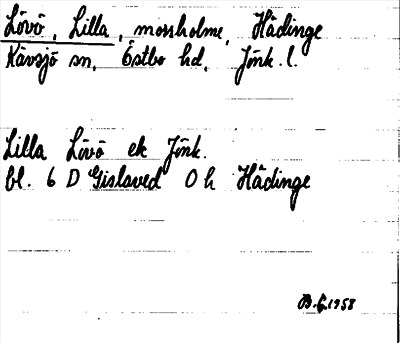 Lövö, Lilla, mossholme, Hådinge
Kävsjö sn, Östbo hd, Jönk. l.
Lilla Lövö ek Jönk.
bl. 6 D Gislaved 0 h Hådinge
B.G. 1958